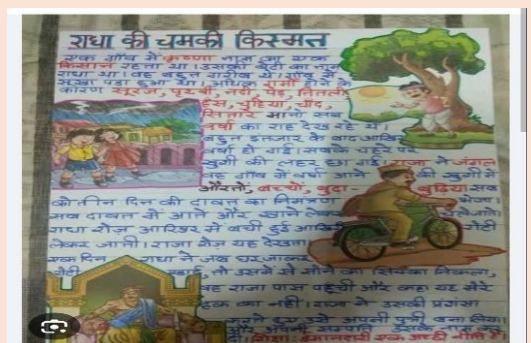 राधा की चमकी किस्मत
एक गाँव में कृष्णा नाम का एक
किसान रहता था। उसकी बेटी का नाम
राधा था। वह बहुत गरीब थे। गाँव में
सूखा पड़ा हुआ था। अधिक गर्मी होने के
कारण सूरज, पृथ्वी, नदी, पेड़, तितली,
हंस, चुहिया, चाँद,
सितारे मानो सब
वर्षा का राह देख रहे थे।
बहुत इंतजार के बाद आखिर
वर्षा हो गई। सबके चेहरे पर
खुशी की लहर छा गई। राजा ने जंगल
गाँव में वर्षा आने की खुशी में
औरतों, बच्चों, बुढा- बुढिया सब
को तीन दिन की दावत का निमंत्रण भेजा।
सब दावत में आते और खाने लेकर चले जाते।
राधा रोज आखिर में बची हुई आखिरी रोटी
लेकर जाती। राजा रोज यह देखता
एक दिन राधा ने जब घर जाकर
रोटी खाई, तो उसमें से सोने का सिक्का निकला,
वह राजा पास पहुँची और कहा यह मेरे
हक का नहीं। राजा ने उसकी प्रशंसा
करते हुए उसे अपनी पुत्री बना लिया।
और अपनी संपत्ति उसके नाम कर
दी। शिक्षा: ईमानदारी एक अच्छी नीति है।